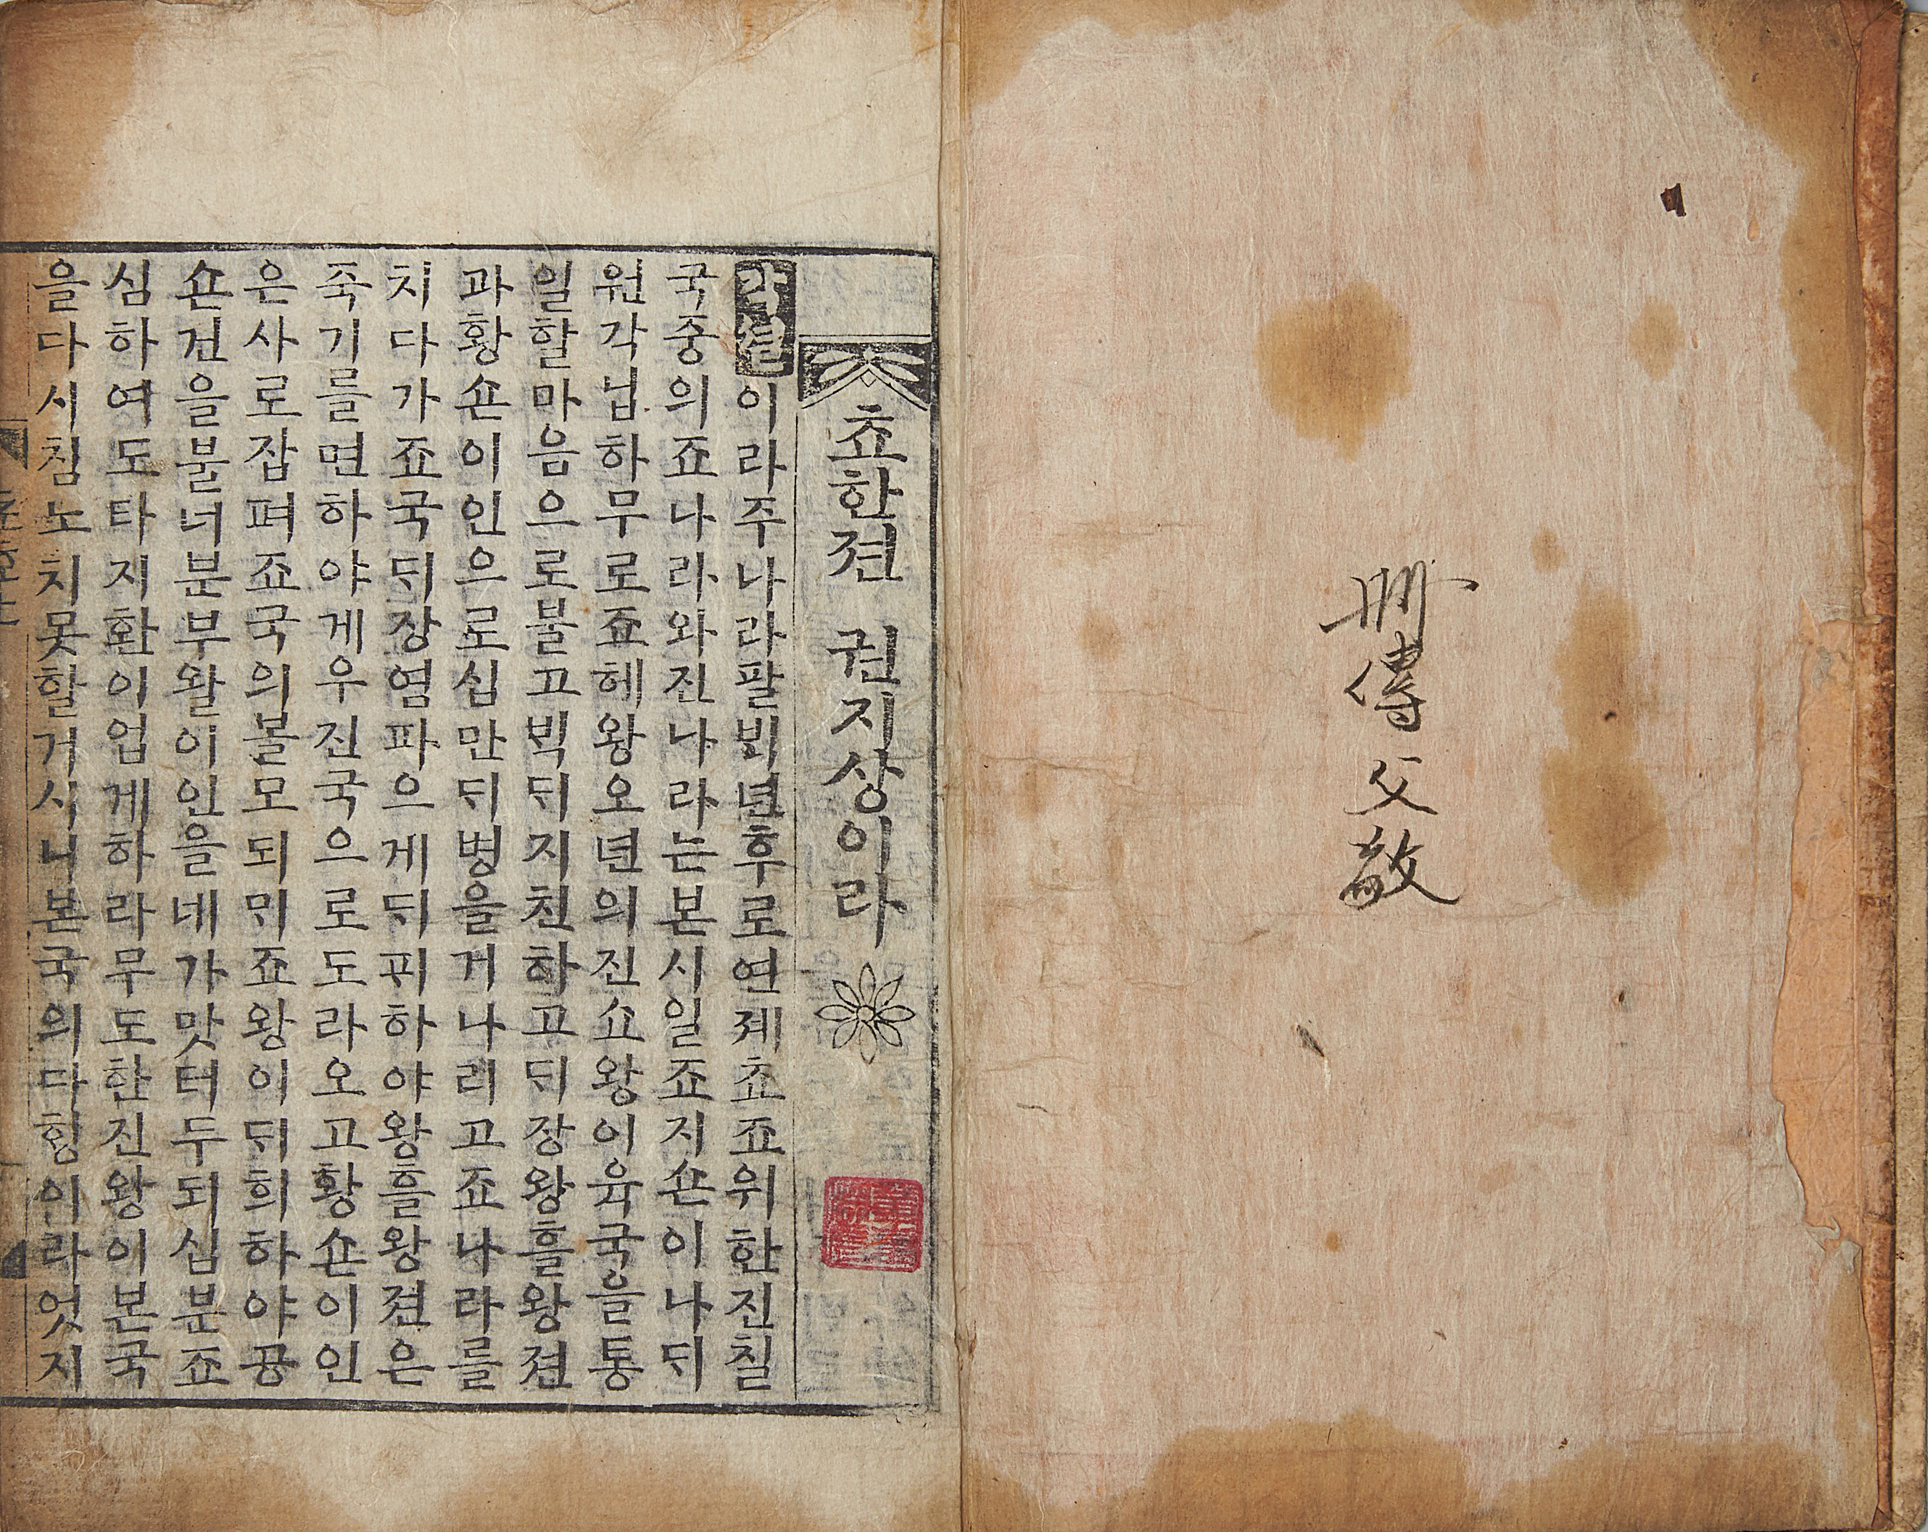 册傳父敬
쵸한젼 권지상이라
각셜이라주나라팔ᄇᆡᆨ년후로연졔쵸죠위한진칠
국중의죠나라와진나라는본시일죠지손이나ᄃᆡ
원각닙하무로죠혜왕오년의진쇼왕이육국을통
일할마음으로불고ᄇᆡᆨᄃᆡ지친하고ᄃᆡ장왕흘왕젼
과황숀이인으로십만ᄃᆡ병을거나리고죠나라를
치다가죠국ᄃᆡ장염파으게ᄃᆡᄑᆡ하야왕흘왕젼은
죽기를면하야게우진국으로도라오고황숀이인
은사로잡펴죠국의볼모되ᄆᆡ죠왕이ᄃᆡ희하야공
숀건을불너분부왈이인을네가맛터두되심분죠
심하여도타지환이업게하라무도한진왕이본국
을다시침노치못할거시니본국의다ᄒᆡᆼ이라엇지